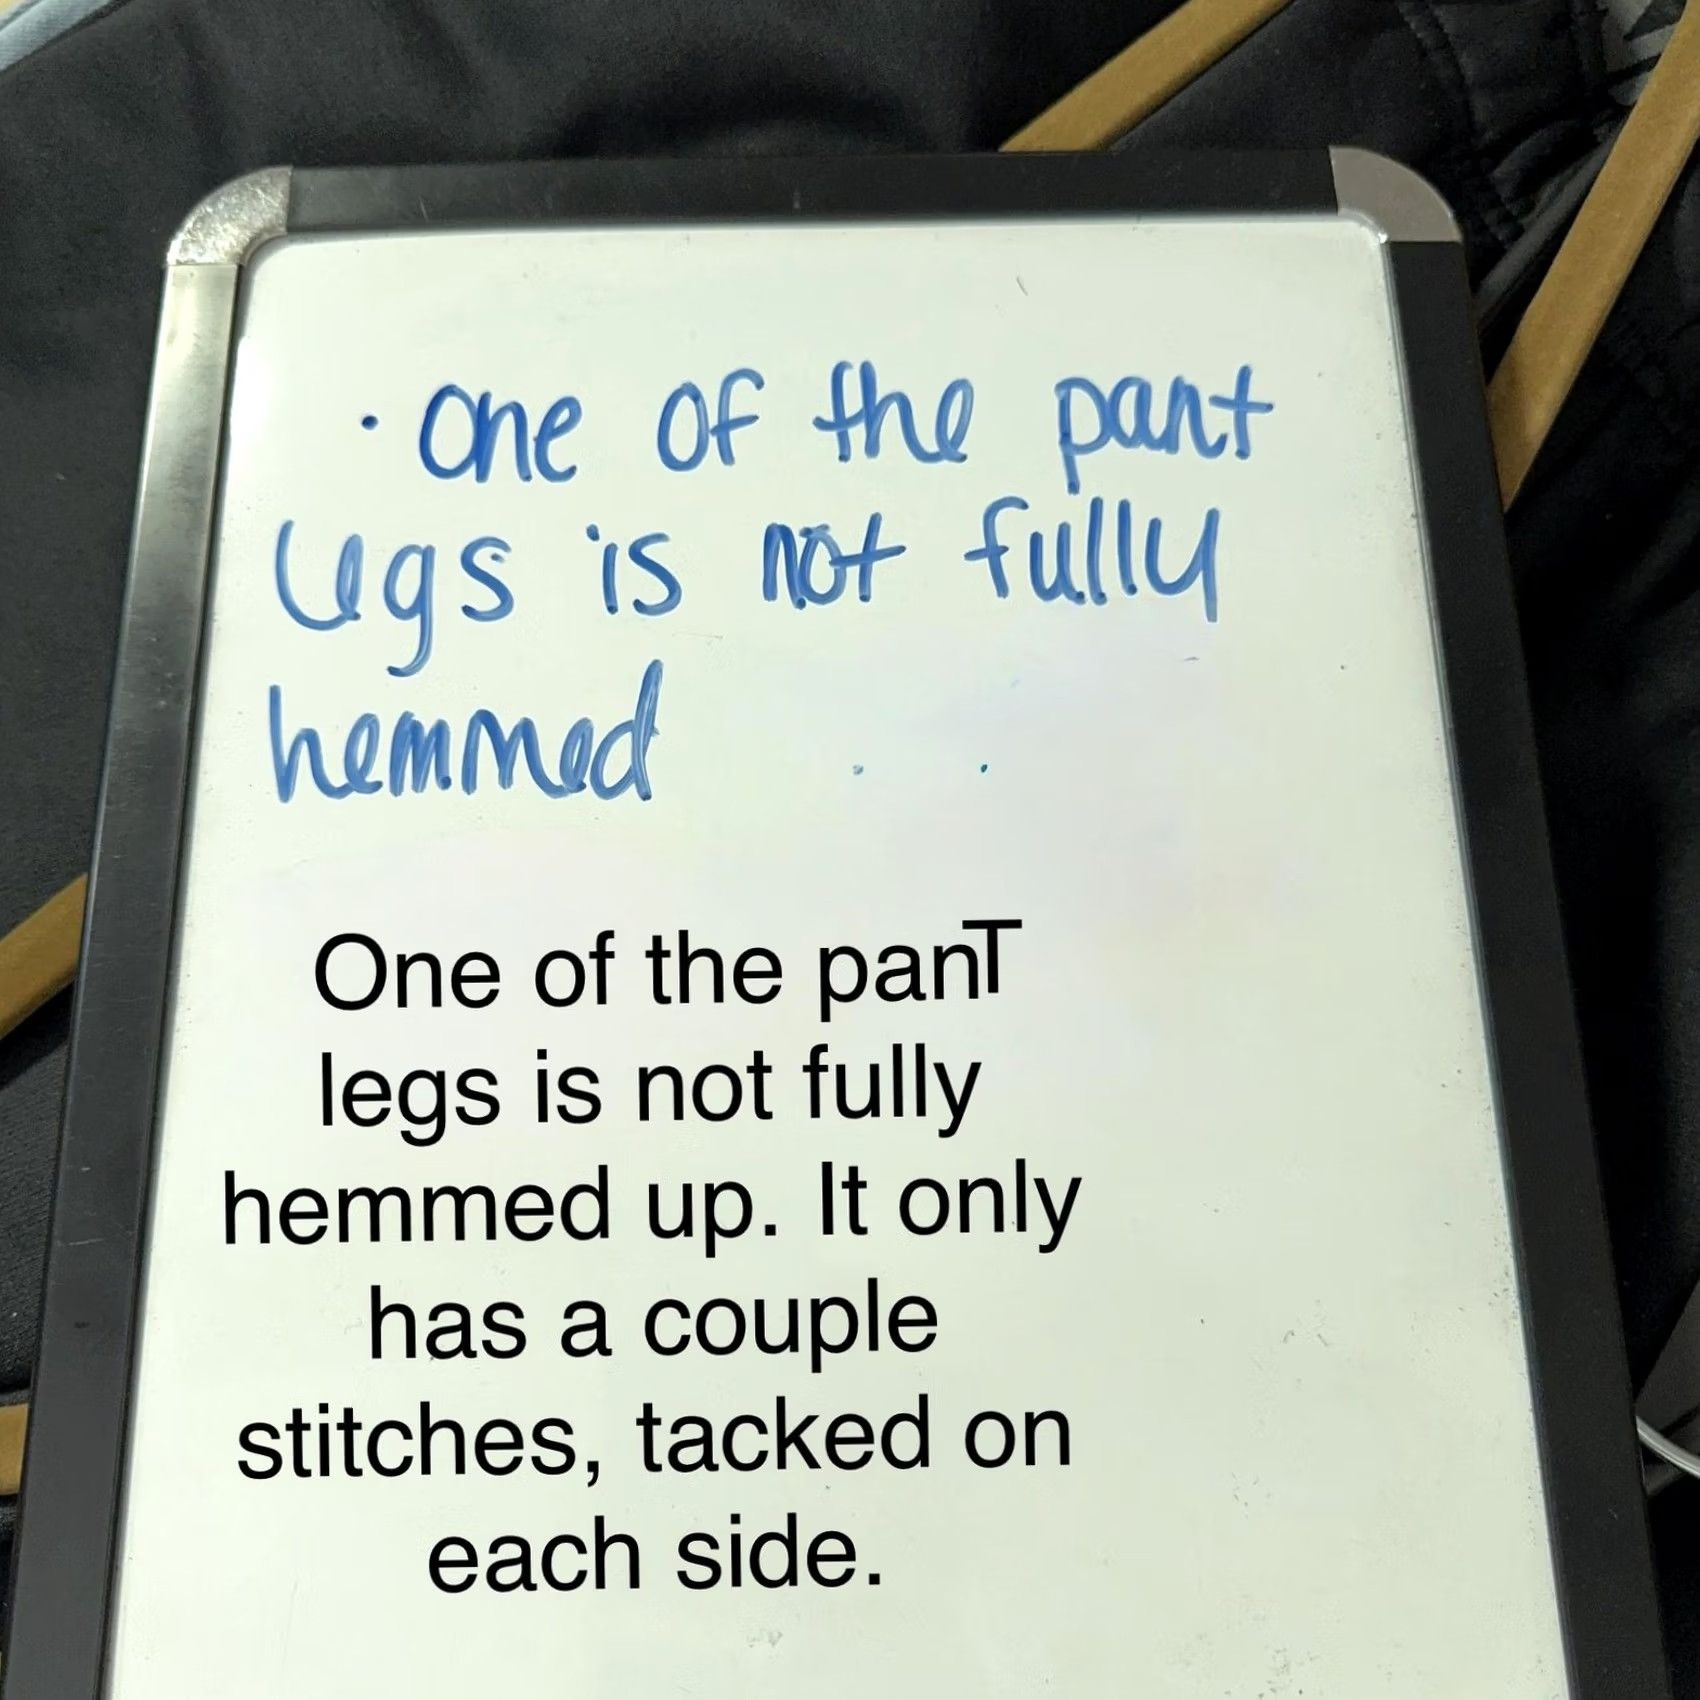 · One of the pant
legs is not fully
hemmed
One of the panT
legs is not fully
hemmed up. It only
has a couple
stitches, tacked on
each side.